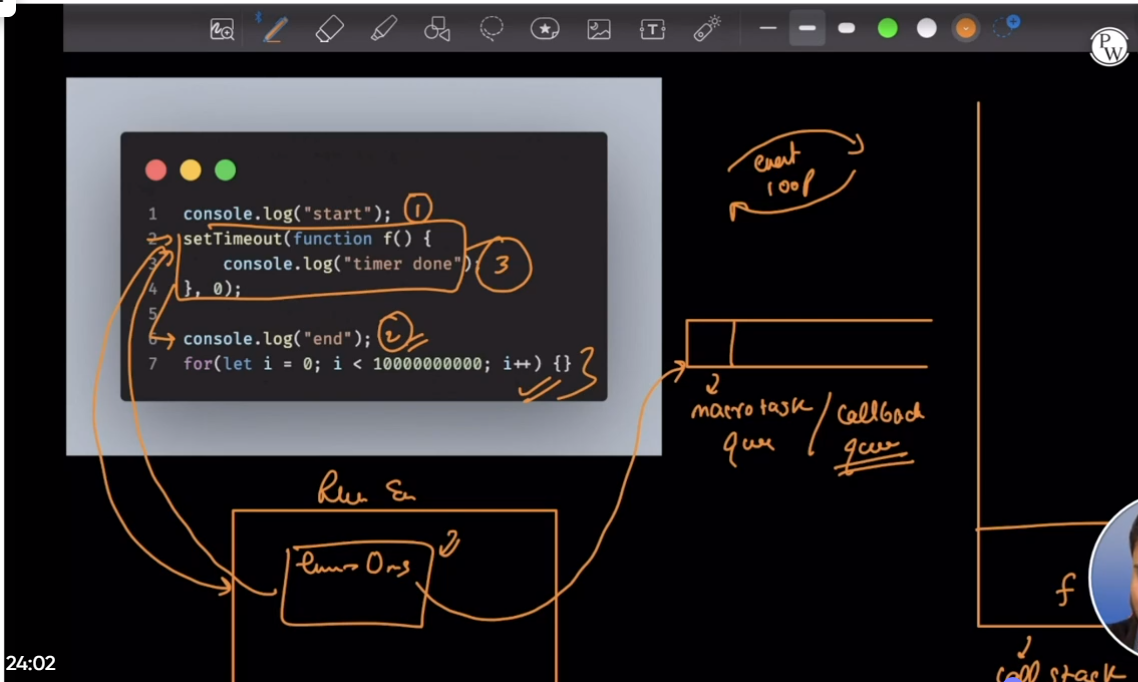 PW
1 console.log("start"); 1
2 setTimeout(function f() {
3 console.log("timer done"); 3
4 }, 0);
5
6 console.log("end"); 2
7 for(let i = 0; i < 10000000000; i++) {}
event
loop
macro task / callback
queue
Run
0ms
f
call stack
24:02